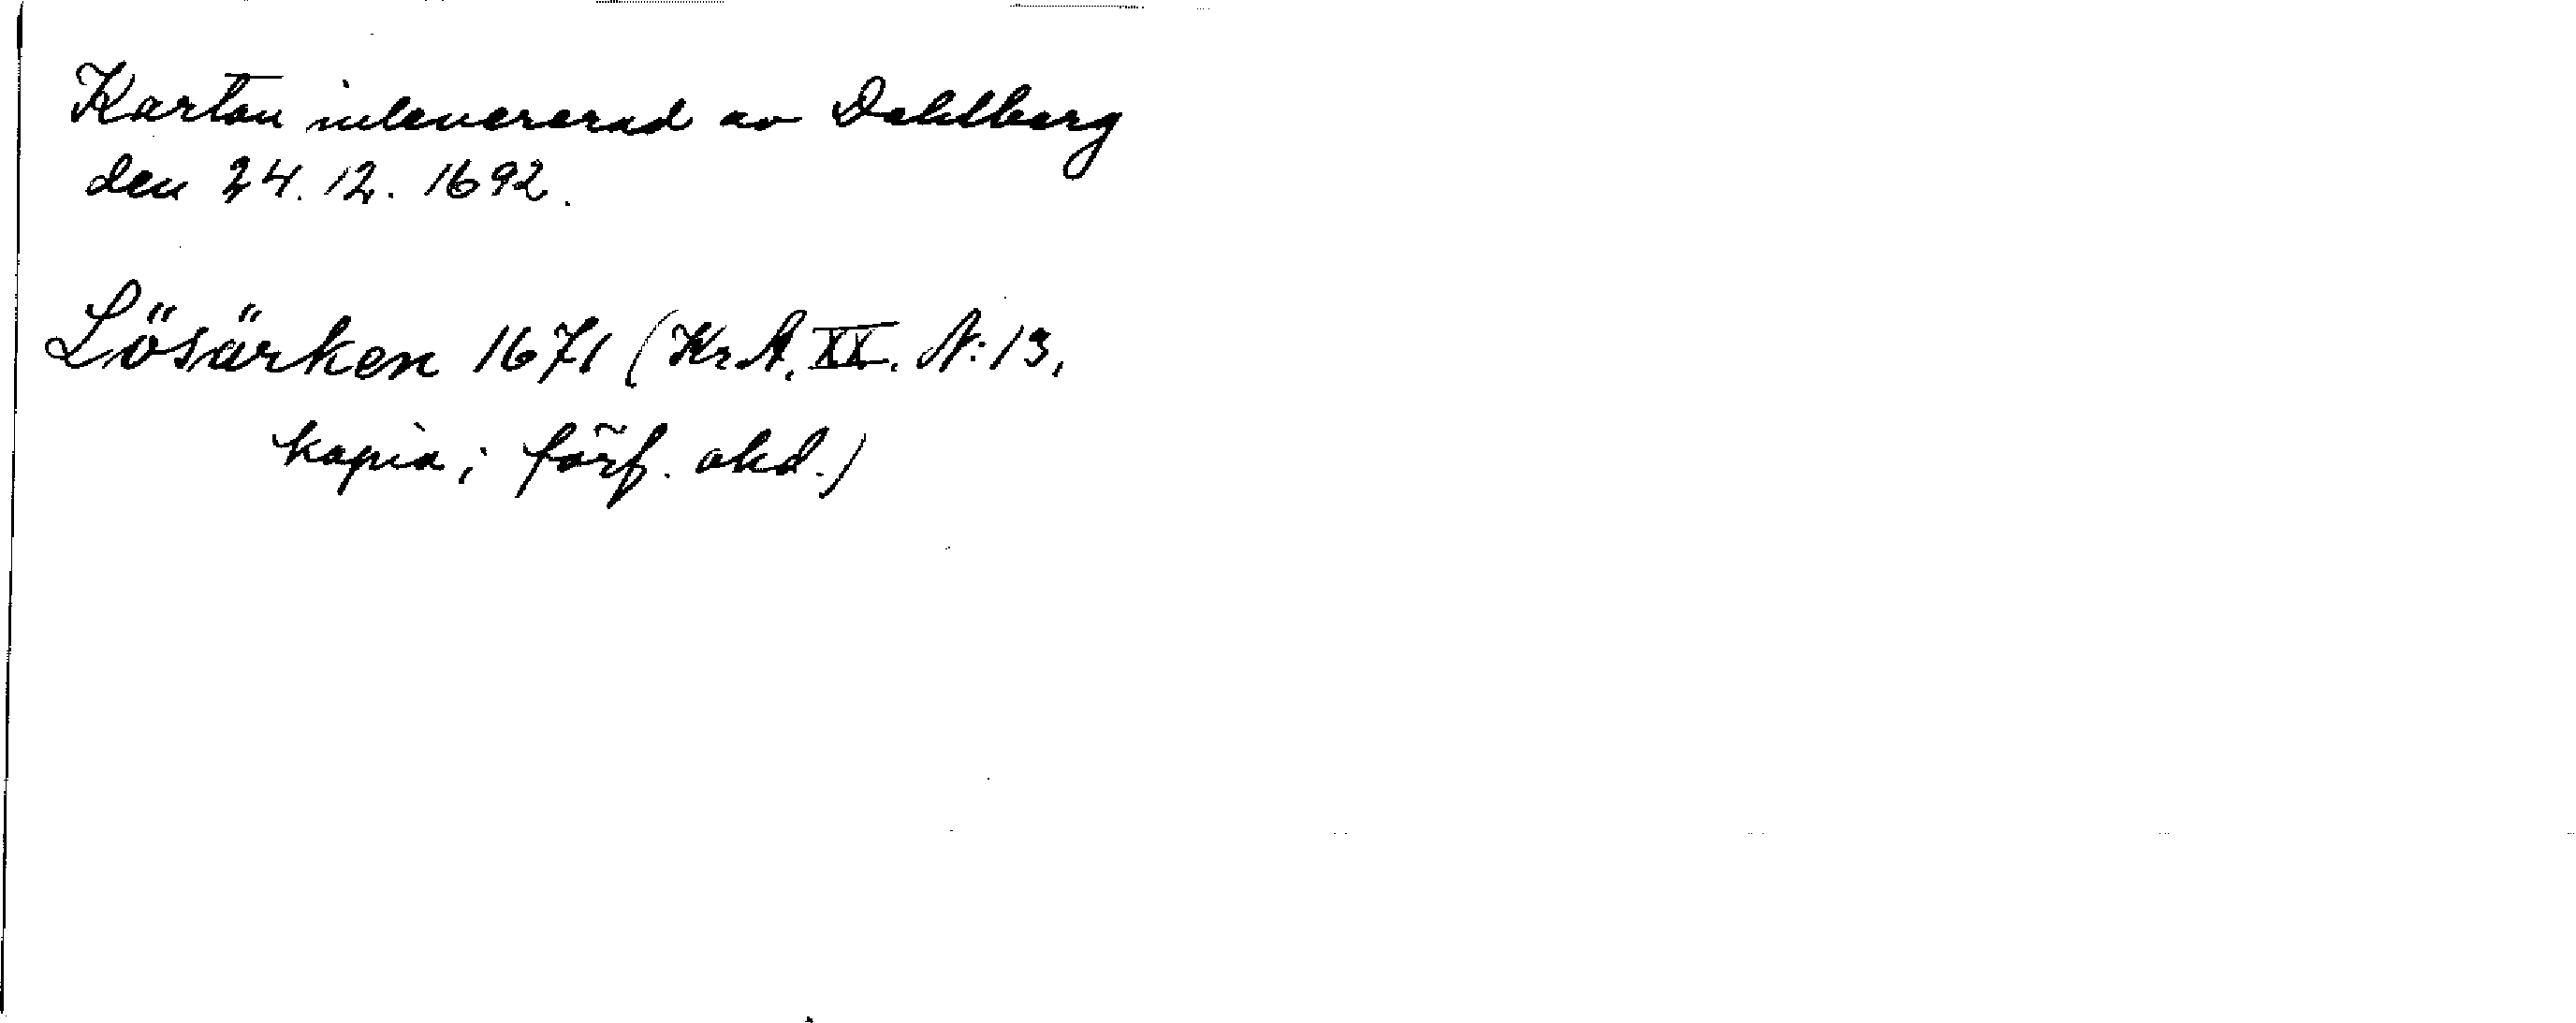 Kartan inlevererad av Dahlberg
den 24. 12. 1692.
Lösärken 1671 (Kr. A. XX. N: 13,
kopia; förf. okd.)